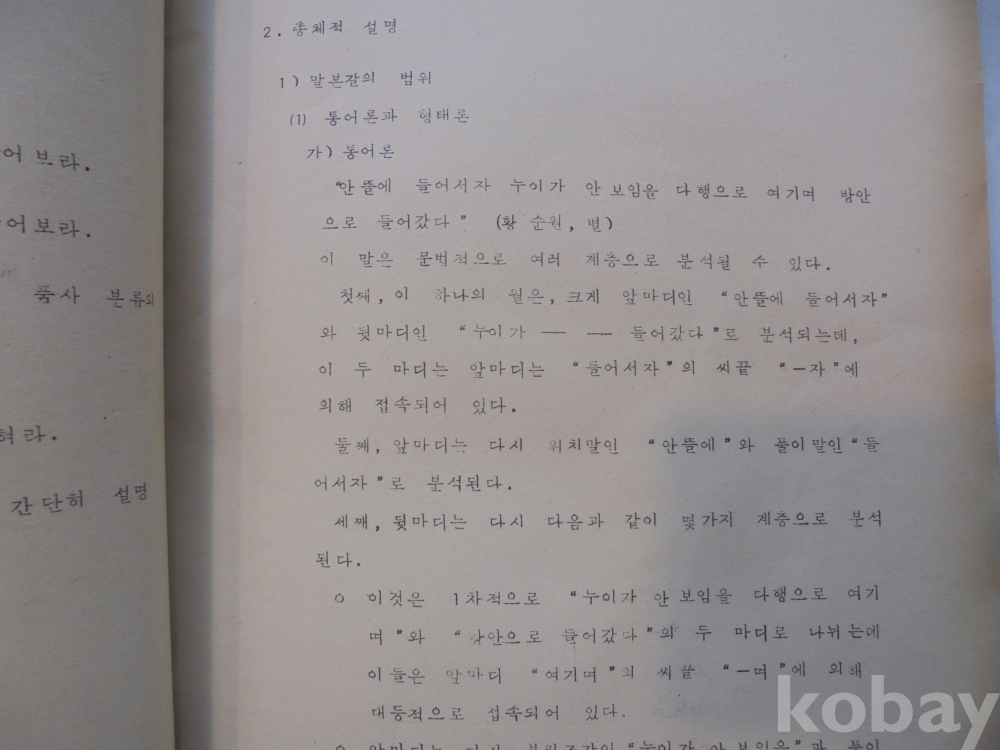 어보라.
어보라.
품사 분류의
혀라.
간단히 설명
2. 총체적 설명
1) 말본갈의 범위
(1) 통어론과 형태론
가) 통어론
“안 뜰에 들어서자 누이가 안 보임을 다행으로 여기며 방안
으로 들어갔다” (황 순원, 별)
이 말은 문법적으로 여러 계층으로 분석될 수 있다.
첫째, 이 하나의 월은, 크게 앞마디인 “안뜰에 들어서자”
와 뒷마디인 “누이가 ── ── 들어갔다”로 분석되는데,
이 두 마디는 앞마디는 “들어서자”의 씨끝 “－자”에
의해 접속되어 있다.
둘째, 앞마디는 다시 위치말인 “안뜰에”와 풀이말인 “들
어서자”로 분석된다.
세째, 뒷마디는 다시 다음과 같이 몇가지 계층으로 분석
된다.
○ 이것은 1차적으로 “누이가 안 보임을 다행으로 여기
며”와 “방안으로 들어갔다”의 두 마디로 나뉘는데
이들은 앞마디 “여기며”의 씨끝 “－며”에 의해
대등적으로 접속되어 있다.
○ 앞마디는 다시 “누이가 안 보임을”과
kobay